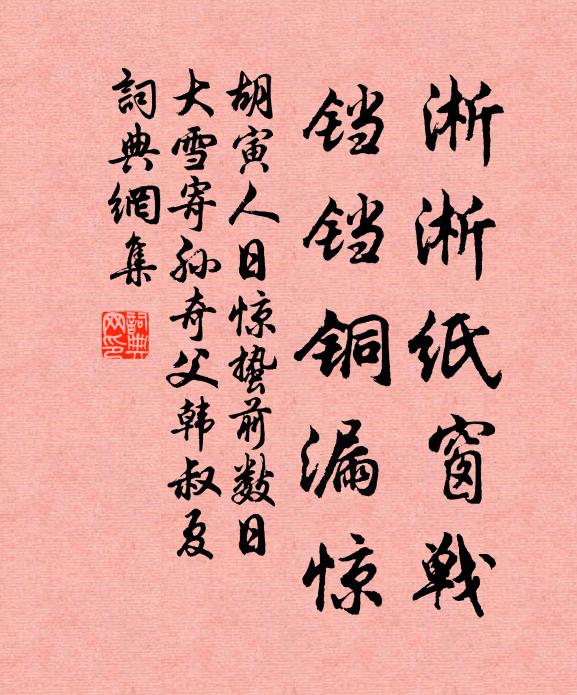 淅淅纸窗战
铛铛铜漏惊
胡寅人日惊蛰前数日
大雪寄孙奇父韩叔夏
詞典網集
詞典
网印